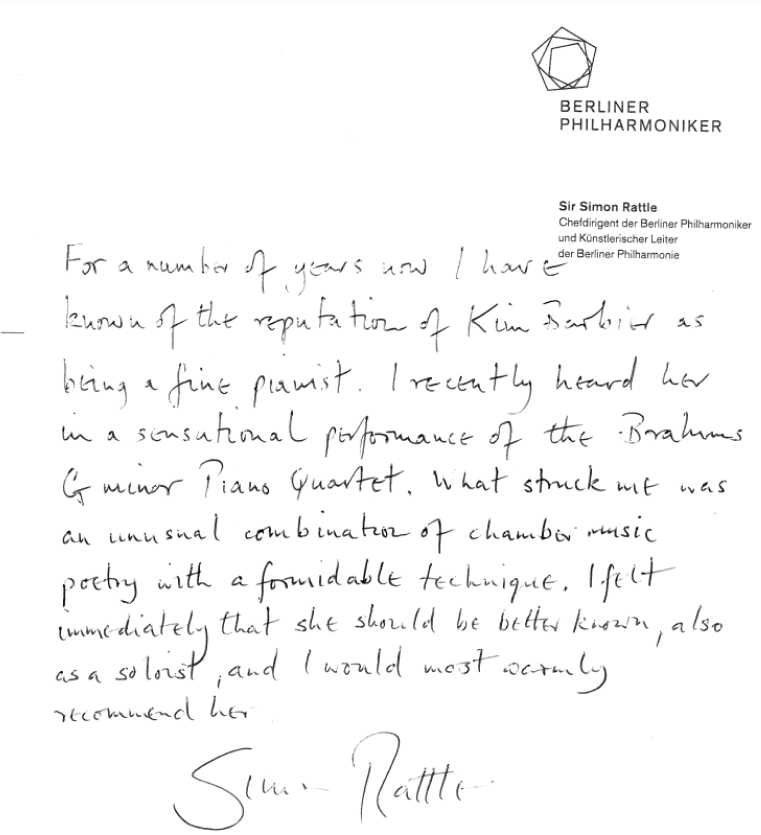 BERLINER
PHILHARMONIKER
Sir Simon Rattle
Chefdirigent der Berliner Philharmoniker
und Künstlerischer Leiter
der Berliner Philharmonie
For a number of years now I have
known of the reputation of Kim Barbier as
being a fine pianist. I recently heard her
in a sensational performance of the Brahms
G minor Piano Quartet. What struck me was
an unusual combination of chamber music
poetry with a formidable technique. I felt
immediately that she should be better known, also
as a soloist, and I would most warmly
recommend her
Simon Rattle